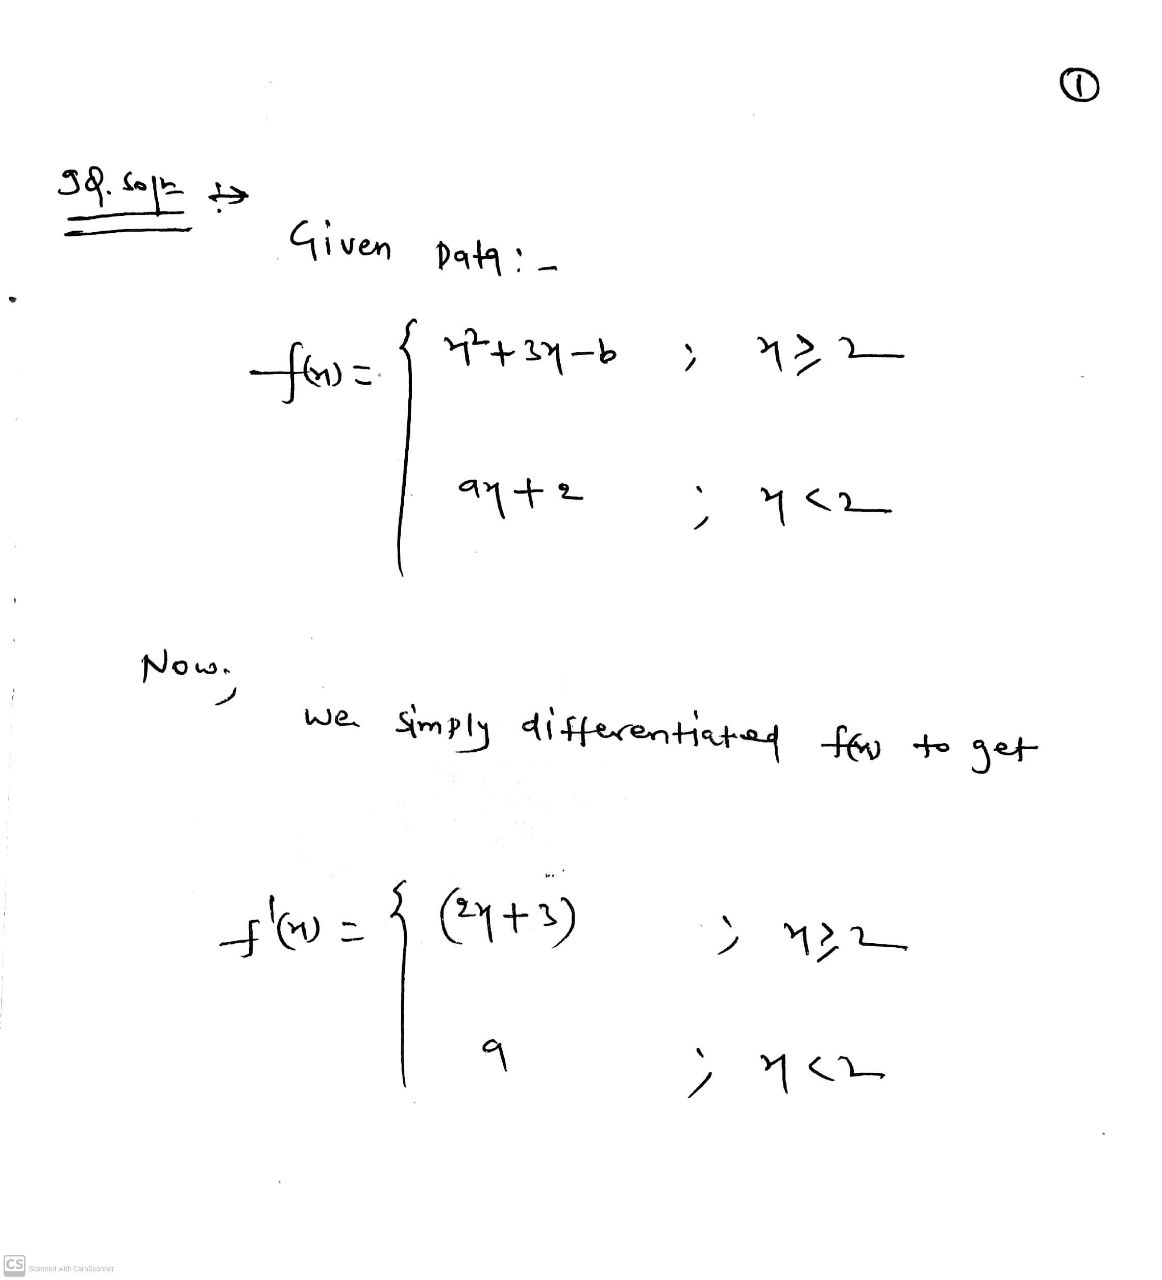 ①
Given Data:-
f(x) = { x²+3x-b ; x ≥ 2
ax+2 ; x < 2
Now,
we simply differentiated f(x) to get
f'(x) = { (2x+3) ; x ≥ 2
a ; x < 2
CS Scanned with CamScanner